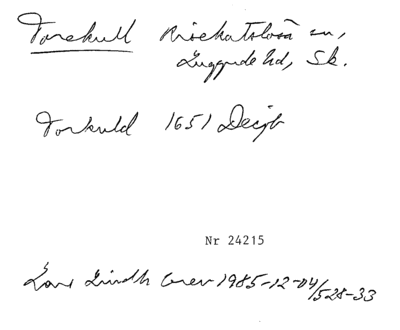 Torekull Risekatslösa sn,
Luggude hd, Sk.
Torkuld 1651 Decjb
Nr 24215
Lars Lindh brev 1985-12-04/528-33